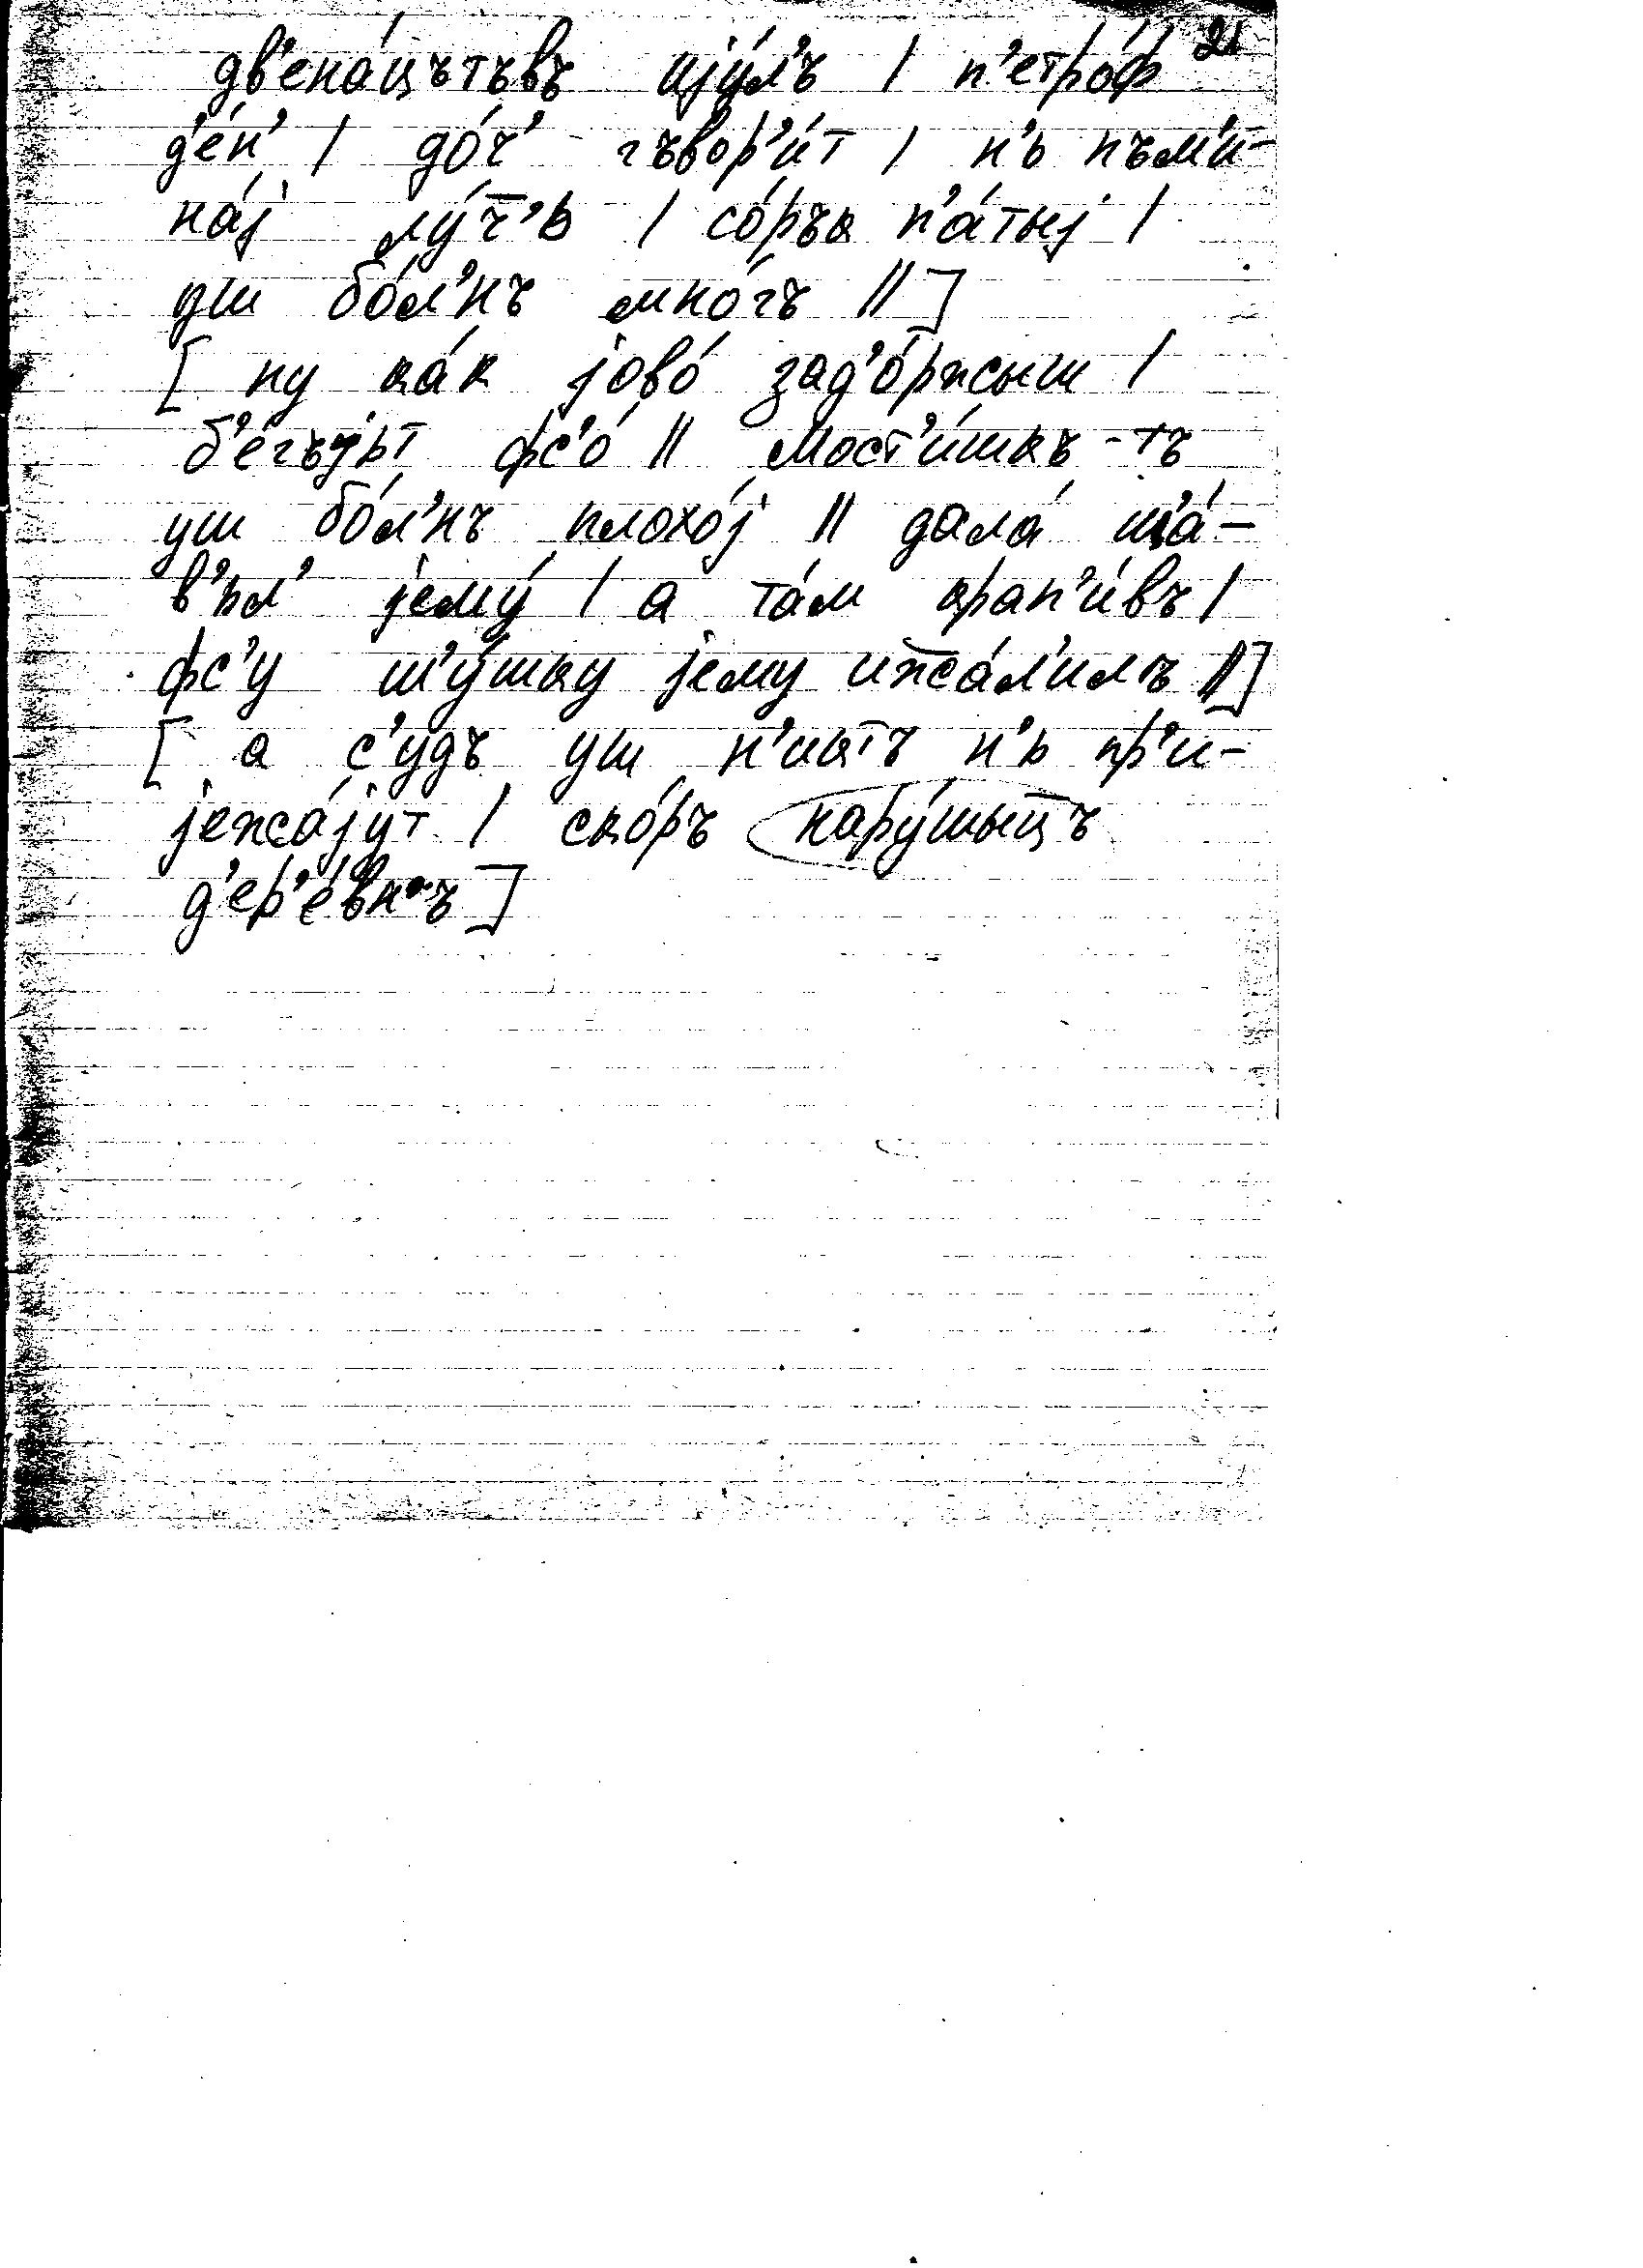 21
дв'ена́цътъвъ ијýл'ъ / п'етро́ф
д'е́н' / до́ч' гъвор'и́т / н'ь пъм'и-
на́ј лу́ч̅'ь / со́рък п'а́тыј /
уш бо́л'нъ мно́гъ //]
[ ну ка́к јово́ зад'о́ржыш /
б'е́гъјьт фс'о́ // мост'и́шкъ-тъ
уш бо́л'нъ плохо́ј // дала́ ш̅'а́-
в'ьл' јему́ / а та́м крап'и́въ /
фс'у ш̅'у́шку јему иж̅а́л'илъ //]
[ а с'удъ уш н'ихтъ н'ь пр'и-
јежа́јут / ско́ръ нару́шыц̅ъ
д'ер'е́вн'ъ ]